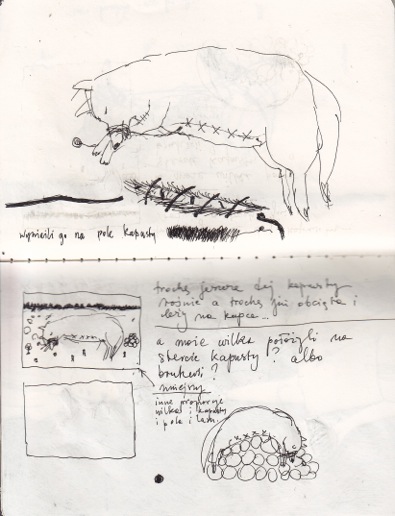 wynieśli go na pole kapusty
trochę jeszcze tej kapusty
rośnie a trochę już obcięta i
leży na kupce..
a może wilka położyli na
stercie kapusty? albo
brukwi?
mniejszy
inne proporcje
wilka i kapusty
i pola i lasu.